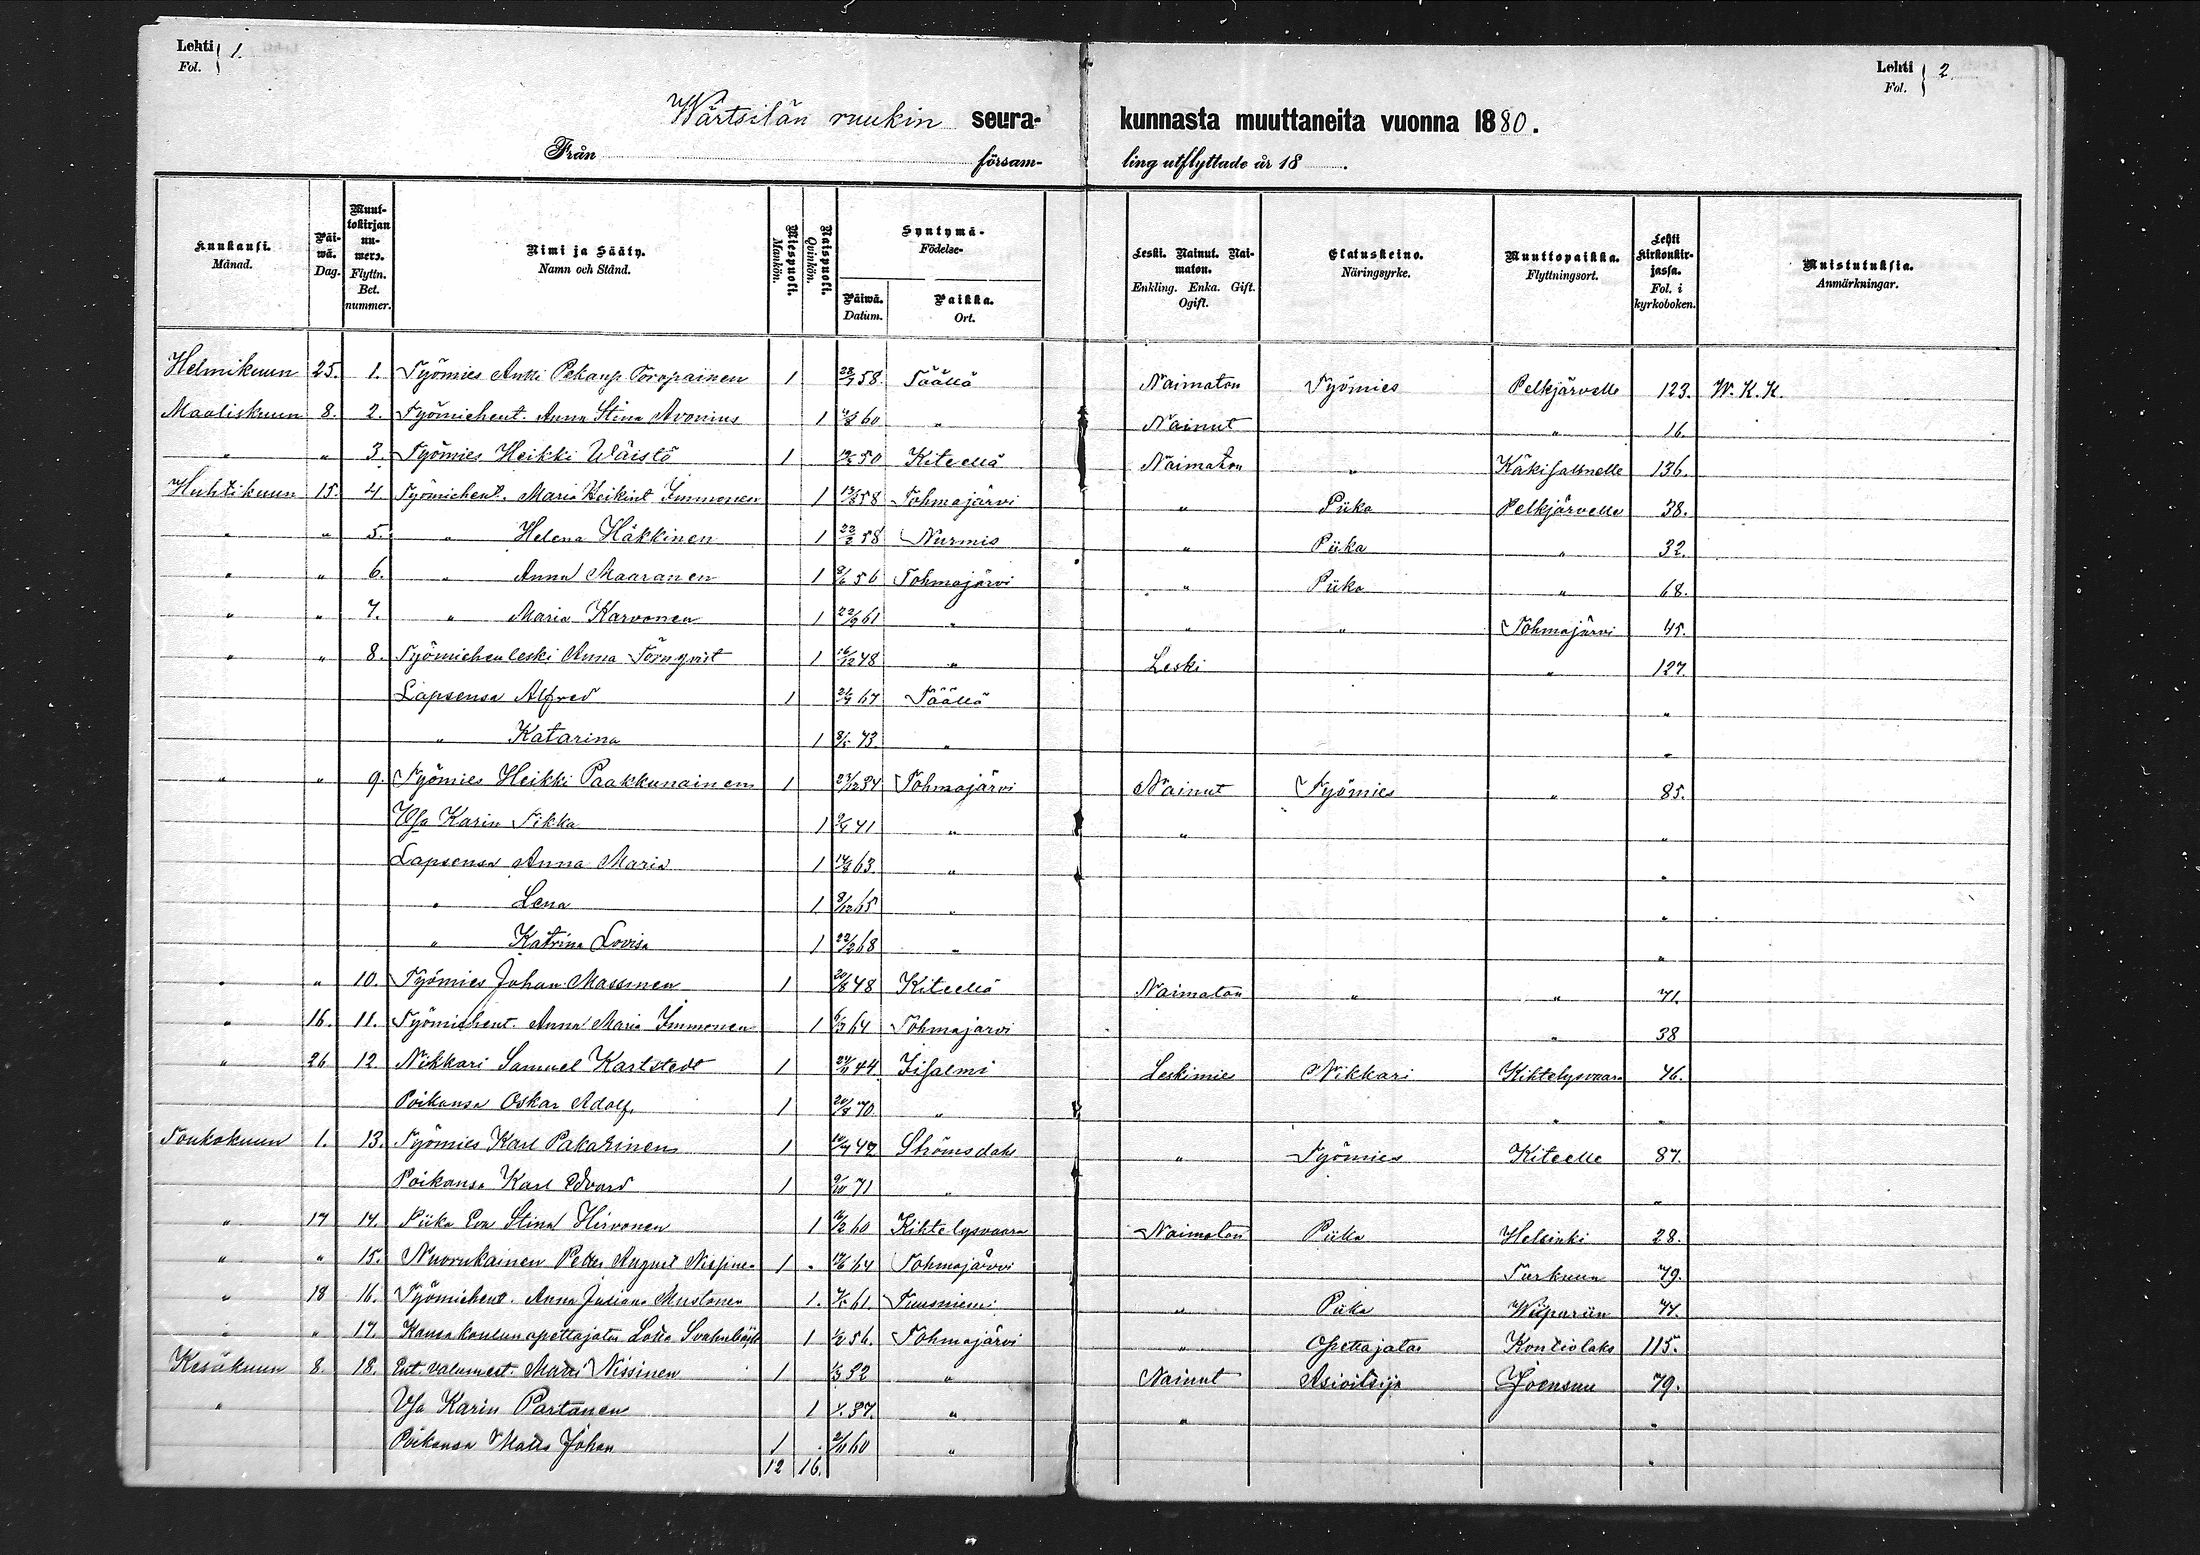 Lehti Fol. 1.
Lehti Fol. 2.
Wärtsilän ruukin seura- kunnasta muuttaneita vuonna 1880.
Från församling utflyttade år 18 .
Kuukausi. Månad. Päiwä. Dag. Muuttokirjan numero. Flyttn. Bet. nummer. Nimi ja Sääty. Namn och Stånd. Miespuoli. Mankön. Naispuoli. Qvinkön. Syntymä- Födelse- Päiwä. Datum. Paikka. Ort. Leski. Nainut. Naimaton. Enkling. Enka. Gift. Ogift. Elatuskeino. Näringsyrke. Muuttopaikka. Flyttningsort. Lehti kirkonkirjassa. Fol. i kyrkoboken. Muistutuksia. Anmärkningar.
Helmikuun 25. 1. Työmies Antti Pekanp. Toropainen 1 58 Täällä Naimaton Työmies Pelkjärvelle 123. W. K. K.
Maaliskuun 8. 2. Työmiehent. Anna Stina Avonius 1 60 " Nainut " 16.
" " 3. Työmies Heikki Wäistö 1 50 Kiteellä Naimaton " Käkisalmelle 136.
Huhtikuun 15. 4. Työmiehent. Maria Heikint Immonen 1 58 Tohmajärvi " Piika Pelkjärvelle 38.
" " 5. " Helena Häkkinen 1 58 Nurmis " Piika " 32.
" " 6. " Anna Maaranen 1 8/6 56 Tohmajärvi " Piika " 68.
" " 7. " Maria Karvonen 1 22/9 61 " " " Tohmajärvi 45.
" " 8. Työmiehen leski Anna Törnqvist 1 16/12 48 " Leski " 127.
Lapsensa Alfred 1 67 Täällä "
" Katarina 1 8/5 73. " "
" " 9. Työmies Heikki Paakkunainen 1 23/12 34 Tohmajärvi Nainut Työmies " 85.
Wsa Karin Tikka 1 41 " " "
Lapsensa Anna Maria 1 63. " "
" Lena 1. 8/12 65 " "
" Katrina Lovisa 1 22/2 68 " "
" " 10. Työmies Johan Massinen 1 48 Kiteellä Naimaton " " 71.
" 16. 11. Työmiehent. Anna Maria Immonen 1 64 Tohmajärvi " 38
" 26 12 Nikkari Samuel Karlstedt 1 44 Iisalmi Leskimies Nikkari Kiktelysvaara 46.
Poikansa Oskar Adolf. 1 70 " " "
Toukokuun 1. 13. Työmies Karl Pakarinen 1 42 Strömsdals " Työmies Kiteelle 87.
Poikansa Karl Edvard 1 9/10 71 " "
" 17 14. Piika Eva Stina Hirvonen 1 60 Kiktelysvaara Naimaton Piika Helsinki 28.
" " 15. Nuorukainen Peter August Nissinen 1 64 Tohmajärvi Turkuun 79.
" 18 16. Työmiehent. Anna Juliana Mustonen 1. 61. Tuusniemi " Piika Wiipuriin 77.
" " 17. Kansakoulun opettajatar Lotta 1 56. Tohmajärvi " Opettajatar Kontiolaks 115.
Kesäkuun 8. 18. Ent. valumest. Matti Nissinen 1 32 " Nainut Asioitsija Joensuu 79.
" Wsa Karin Partanen 1 37. " " "
Poikansa Matts Johan 1 2/11 60 " "
12 16.